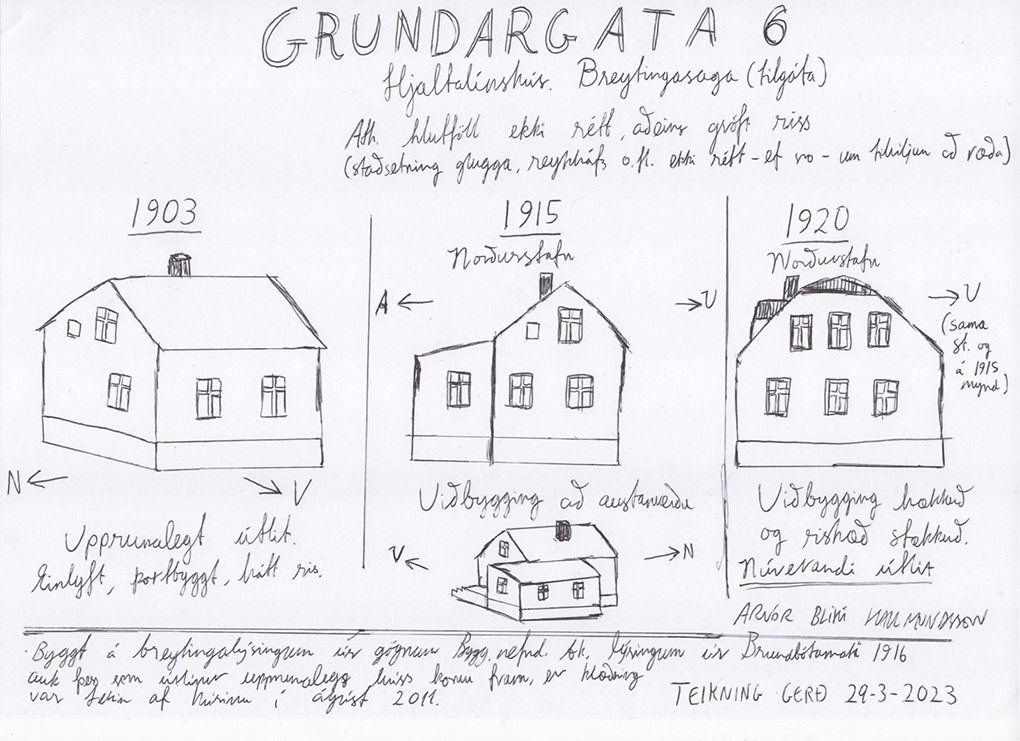 GRUNDARGATA 6
Hjaltalínshús. Breytingasaga (tilgáta)
Ath. hlutföll ekki rétt, aðeins gróft riss
(staðsetning glugga, reykháfs o.fl. ekki rétt - ef svo - um tilviljun að ræða)
1903
N
V
Upprunalegt útlit.
Einlyft, portbyggt, hátt ris.
1915
Norðurstafn
A
V
Viðbygging að austanverðu
V
N
1920
Norðurstafn
V
(sama
st. og
á 1915
mynd)
Viðbygging hækkuð
og rishæð stækkuð.
Núverandi útlit
ARNÓR BLIKI HALLMUNDSSON
Byggt á breytingalýsingum úr gögnum Bygg.nefnd. Ak, lýsingum úr Brunabótamati 1916
auk þess som útlínur upprunalegs húss komu fram, er klæðning
var tekin af húsinu í ágúst 2011.
TEIKNING GERÐ 29-3-2023